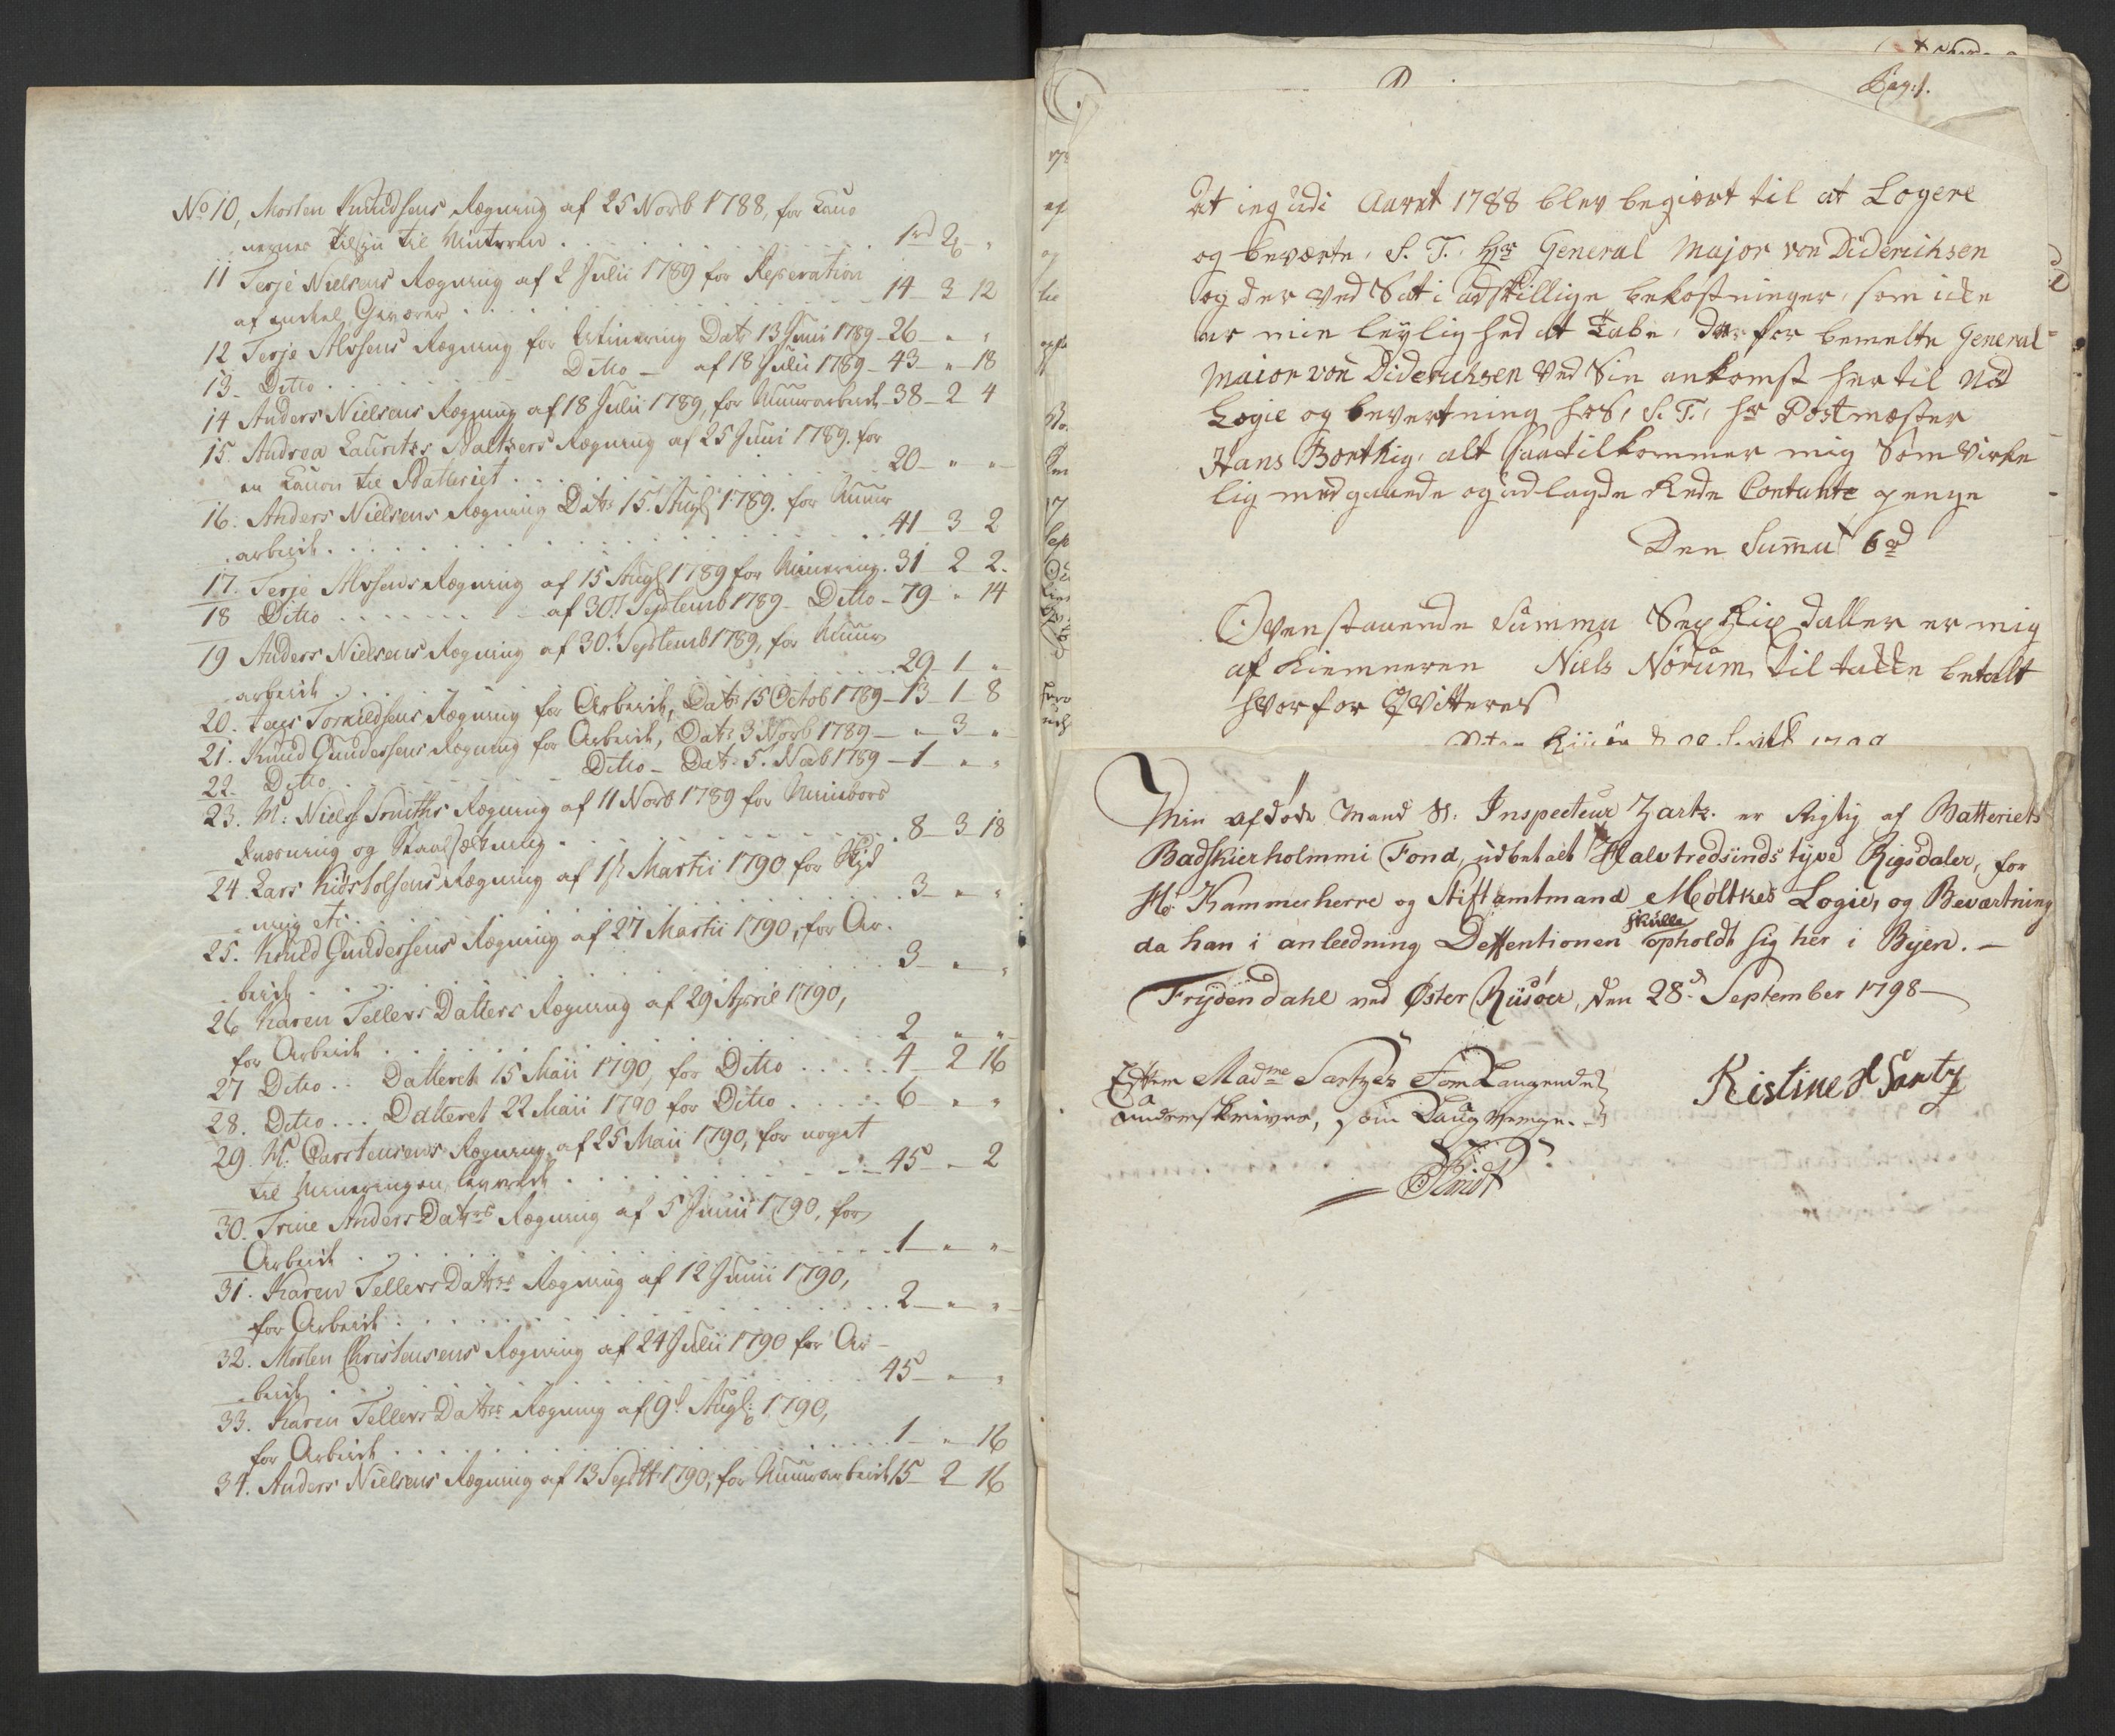 No 10, Morten Knudsens Regning af 25 Novb 1788, for Cano
nernes tilsÿn til Vinteren . . . 1rd 2 "
11 Terje Nielsens Regning af 2 Julii 1789 for Reperation
af endeel Geværer . . . 14 – 3 12
12 Terje Alfsens Regning for Minering Dat 13 Juni 1789 – 26 – " "
13 – Ditto . . . Ditto – af 18 Julii 1789 – 43 – " – 18
14 Anders Nielsens Regning af 18 Julii 1789, for Muurarbeide – 38 – 2 4
15. Andrea Lauritz Baltzers Regning af 25 Juni 1789. for
en Canon til Batteriet . . . 20 – " "
16. Anders Nielsens Regning Dat. 15. Augt 1789. for Muur
arbeide . . . 41 – 3 2
17. Terje Alfsens Regning af 15 Augt 1789 for Minering . 31 – 2 2.
18 Ditto . . . af 30t Septemb 1789 – Ditto – 79 – " 14
19 Anders Nielsens Regning af 30t Septemb 1789, for Muur
arbeide . . . 29 – 1 "
20. Jens Torkildsens Regning for Arbeide, Dat. 15 Octob 1789 – 13 – 1 – 8
21. Knud Gundersens Regning for Arbeide, Dat. 3 Novb 1789 – " – 3 – "
22. Ditto . Ditto – Dat. 5. Novb 1789 – 1 – " "
23. M: Niels Smiths Regning af 11 Novb 1789 for Minebors
qvæsning og Staalsætning . . . 8 – 3 – 18
24. Lars Kidstolsens Regning af 1st Martii 1790 for Skÿd
ning etc . . . 3 – " "
25. Knud Gundersens Regning af 27 Martii 1790, for Ar-
beide . . . 3 – " "
26 Karen Tellevs Datters Regning af 29 April 1790,
for Arbeide . . . 2 " "
27 Ditto . . Datteret 15 Maii 1790, for Ditto . . . 4 – 2 16
28. Ditto . . . Datteret 22 Maii 1790 for Ditto . . . 6 – " "
29. M: Carstensens Regning af 25 Maii 1790, for noget
til Mineringen leveret . . . 45 – " 2
30. Trine Anders Datrs Regning af 5 Junii 1790, for
Arbeide . . . 1 – " "
31. Karen Tellevs Datrs Regning af 12 Junii 1790,
for Arbeide . . . 2 – " "
32. Morten Christensens Regning af 24 Julii 1790 for Ar-
beide . . . 45 – " "
33. Karen Tellevs Datrs Regning af 9t Augt: 1790,
for Arbeide . . . 1 – " – 16
34. Anders Nielsens Regning af 13 Septbr 1790, for Muurarbeide 15 – 2 – 16
Pag: 1.
At ieg udi Aaret 1788 blev begiært til at Logere
og beværte, S. T. Hr General Major von Diderichsen
og der ved Sat i adskillige bekostninger, som icke
er min leylighed at Tabe, da for bemelte General=
Maior von Diderichsen ved Sin ankomst her til Nød
Logie og bevertning hos, S. T. hr Postmester
Hans Borthig, alt saa tilkommer mig Som Virke
lig medgaaede og udlagde Rede Contante penge
Den Summa 6rd
Ovenstaaende Summa Sex Rix daller er mig
af Kiemneren Niels Nörum, til tacke betalt
hvorfor Qvitteres
Min afdøde Mand Sl. Inspecteur Zartz. er Rigtig af Batteriets
Badskierholmmi Fond, udbetalt Halvtredsindstÿve Rigsdaler, for
Hr Kammerherre og Stiftamtmand Moltkes Logie, og Beværtning
skulle
da han i anleedning Deffentionen opholdt sig her i Byen. –
Frÿdendahl ved Øster Riisøer, den 28d September 1798 –
Efter Madme Sartzes Forlangende
underskriver, som Laugverge.
Kistine Sartz